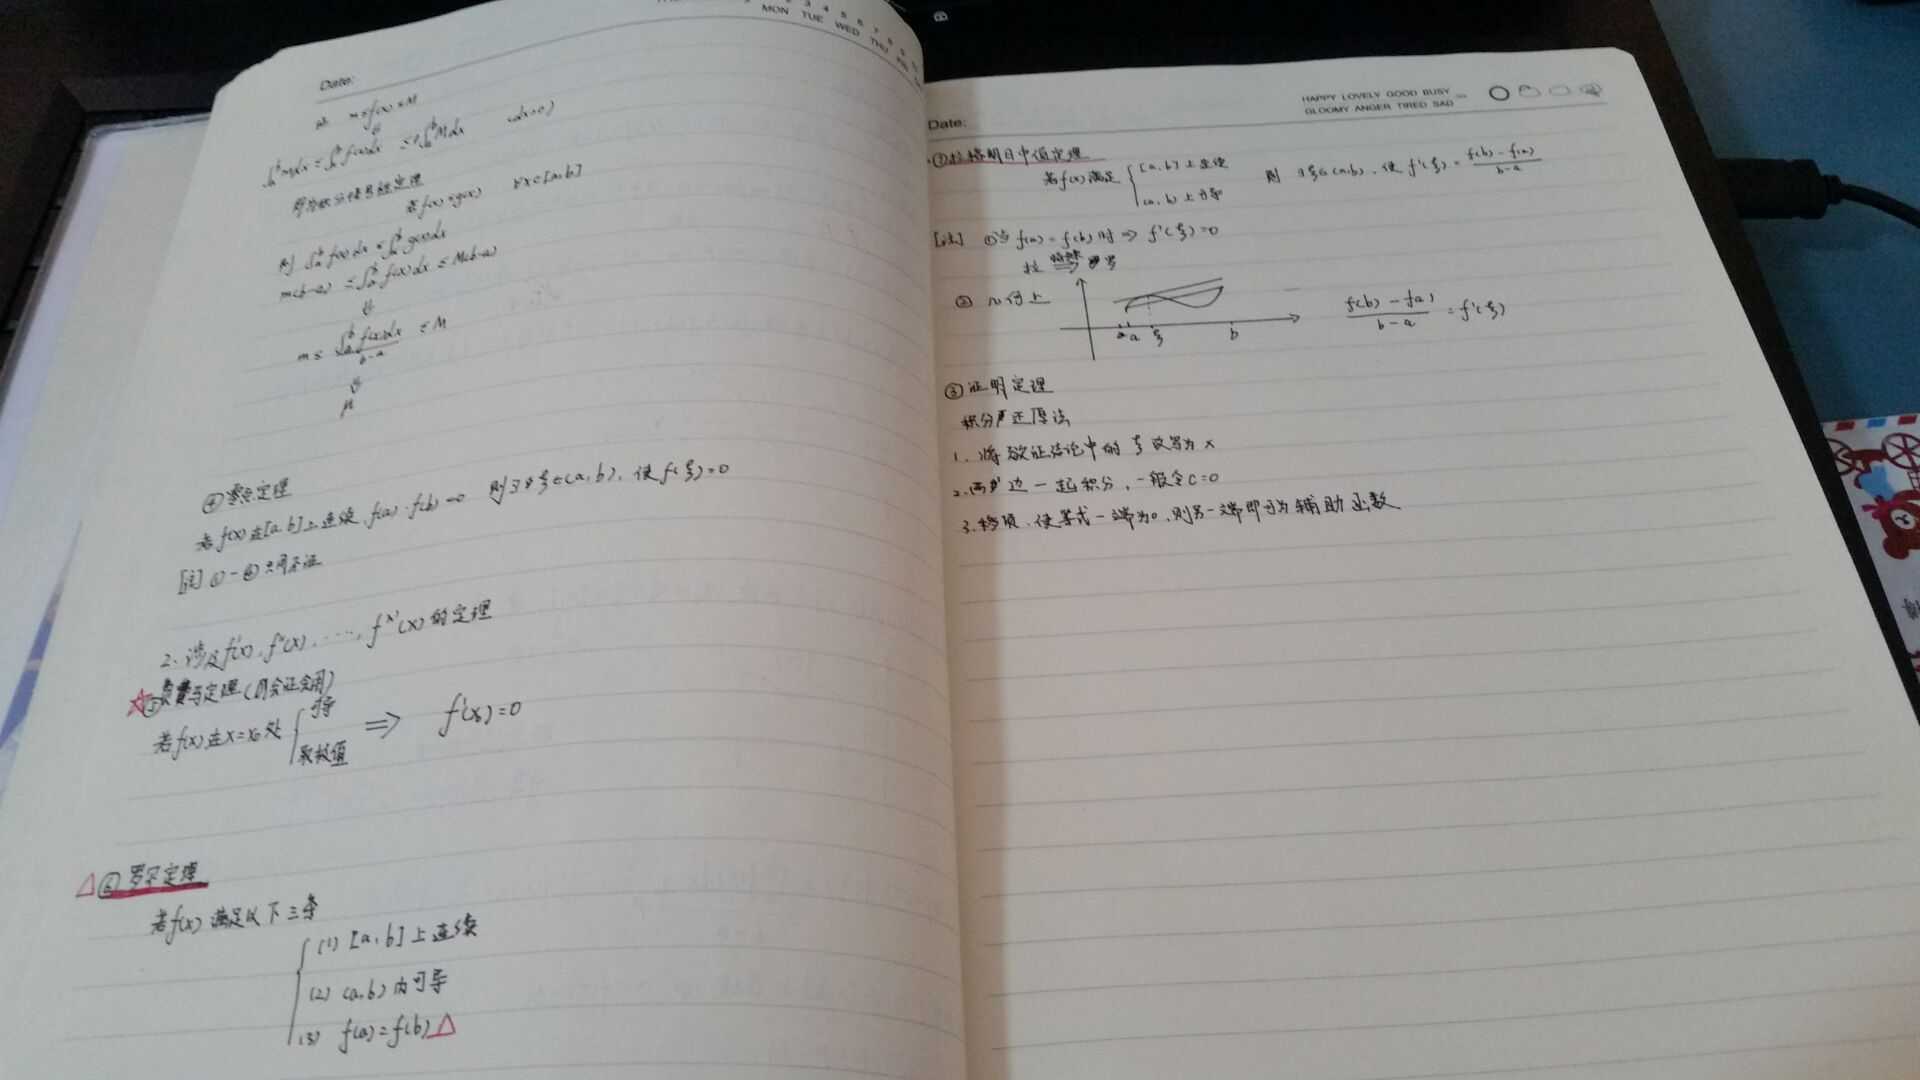 MON TUE WED THU FRI
Date:
m≤f(x)≤M
⇓
∫ₐᵇmdx≤∫ₐᵇf(x)dx≤∫ₐᵇMdx (dx>0)
即为积分保号性定理
若f(x)≤g(x) ∀x∈[a,b]
则 ∫ₐᵇf(x)dx≤∫ₐᵇg(x)dx
m(b-a)≤∫ₐᵇf(x)dx≤M(b-a)
⇓
m≤ ∫ₐᵇf(x)dx/(b-a) ≤M
⇓
μ
④零点定理
若f(x)在[a,b]上连续,f(a)·f(b)<0 则∃ξ∈(a,b),使f(ξ)=0
[注]①-④只用不证
2.涉及f'(x),f''(x),…,f⁽ˣ⁾(x)的定理
☆⑤费马定理(会证会用)
若f(x)在x=x₀处{可导
取极值 ⇒ f'(x₀)=0
△⑥罗尔定理
若f(x)满足以下三条
(1)[a,b]上连续
(2)(a,b)内可导
(3) f(a)=f(b)△
HAPPY LOVELY GOOD BUSY
GLOOMY ANGER TIRED SAD
Date:
⑦拉格朗日中值定理
若f(x)满足{[a,b]上连续
(a,b)上可导 则∃ξ∈(a,b),使f'(ξ)=(f(b)-f(a))/(b-a)
[注] ①当f(a)=f(b)时⇒f'(ξ)=0
拉 ⇒ 罗
②几何上
a ξ b
(f(b)-f(a))/(b-a)=f'(ξ)
③证明定理
积分还原法
1.将欲证结论中的ξ改写为x
2.两边一起积分,一般令C=0
3.移项,使等式一端为0,则另一端即为辅助函数